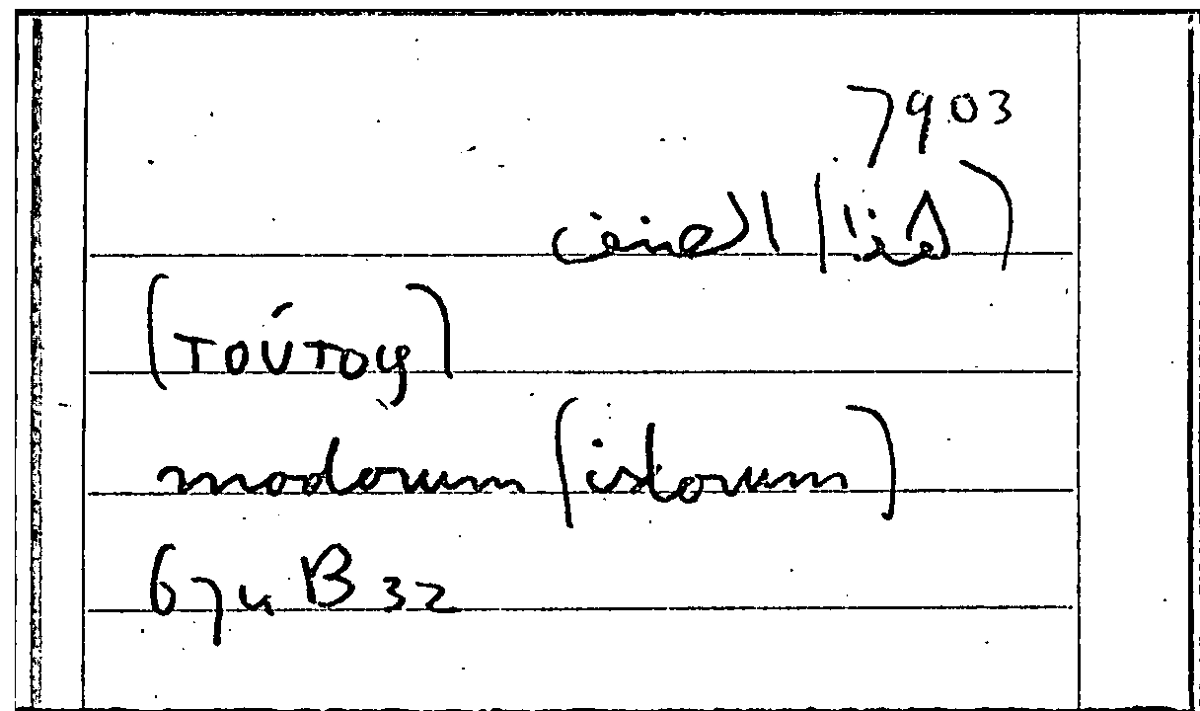 7903
(هذا) الصنف
(τούτοις)
modorum (istorum)
674 B 32